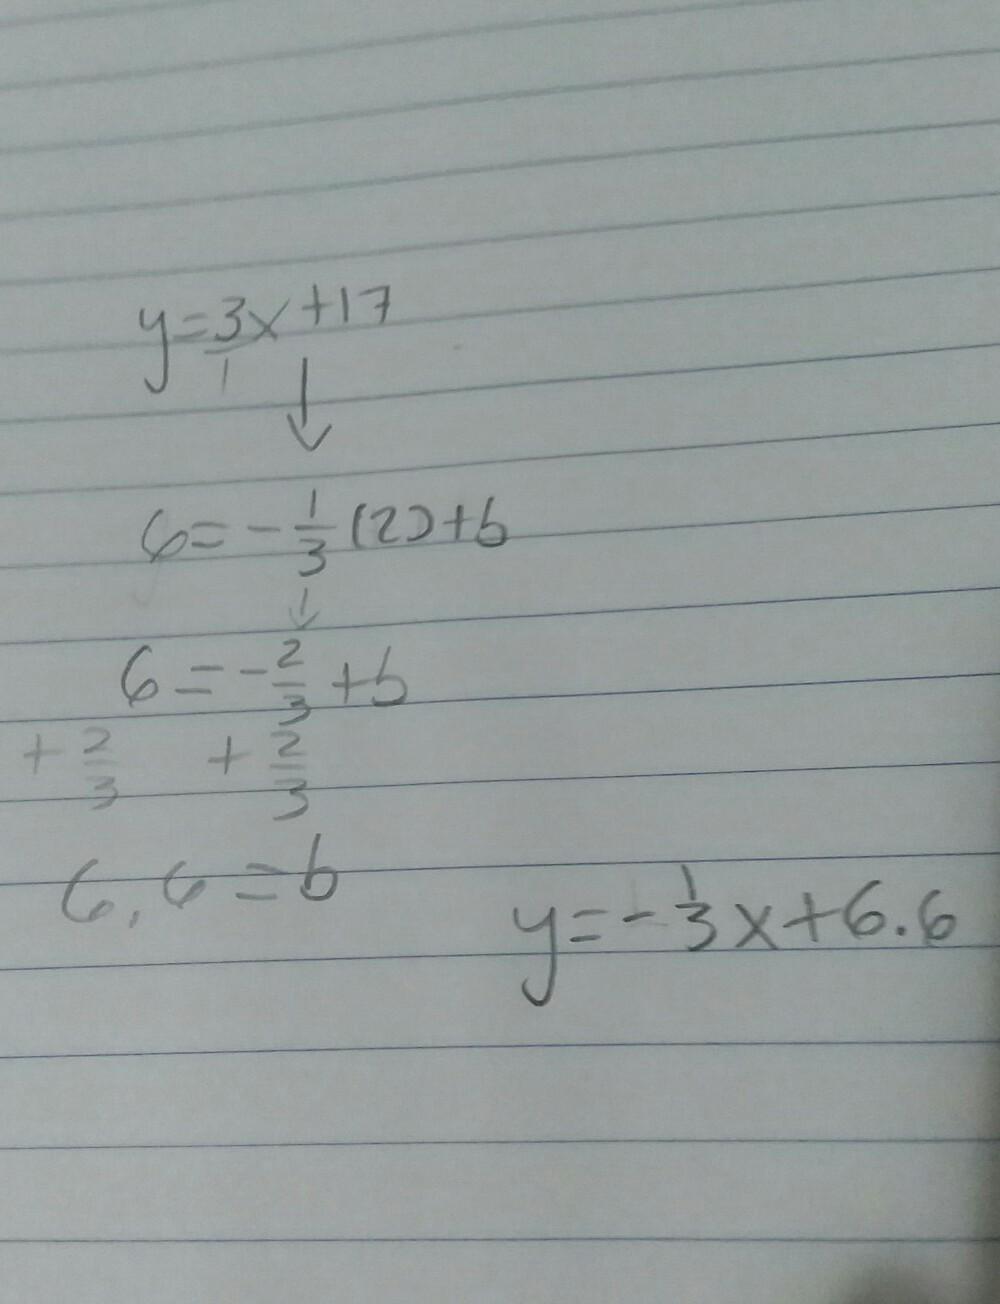 y=3x+17
1
↓
6=-1/3(2)+b
↓
6=-2/3+b
+2/3 +2/3
6.6=b
y=-1/3x+6.6